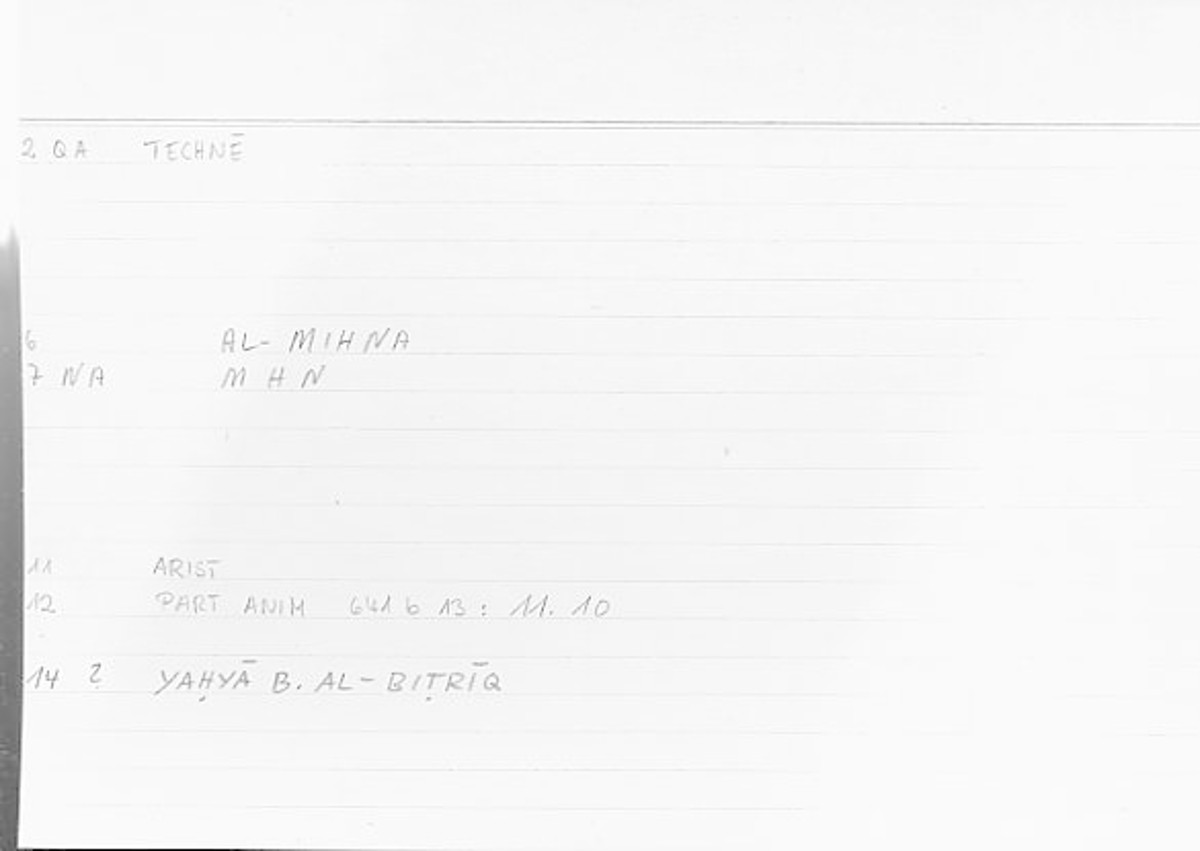 2 QA TECHNĒ
6 AL-MIHNA
7 NA M H N
11 ARIST
12 PART ANIM 641 b 13 : 11. 10
14 ? YAḤYĀ B. AL-BIṬRĪQ